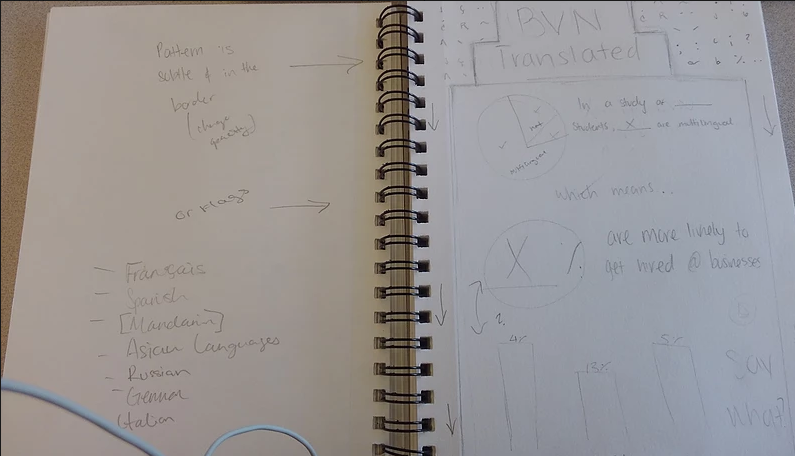 Pattern is
subtle & in the
border
(change
opacity)
or Flags
– Français
– Spanish
– [Mandarin]
– Asian Languages
– Russian
– German
Italian
BVN
Translated
In a study of ____
Students, X are multilingual
not
multilingual
which means...
X %
are more likely to
get hired @ businesses
4%
13%
5%
Say
what?